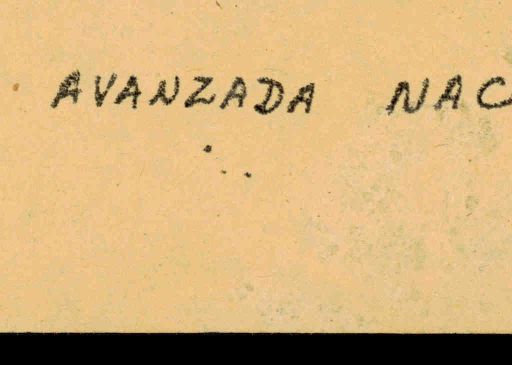 AVANZADA NAC